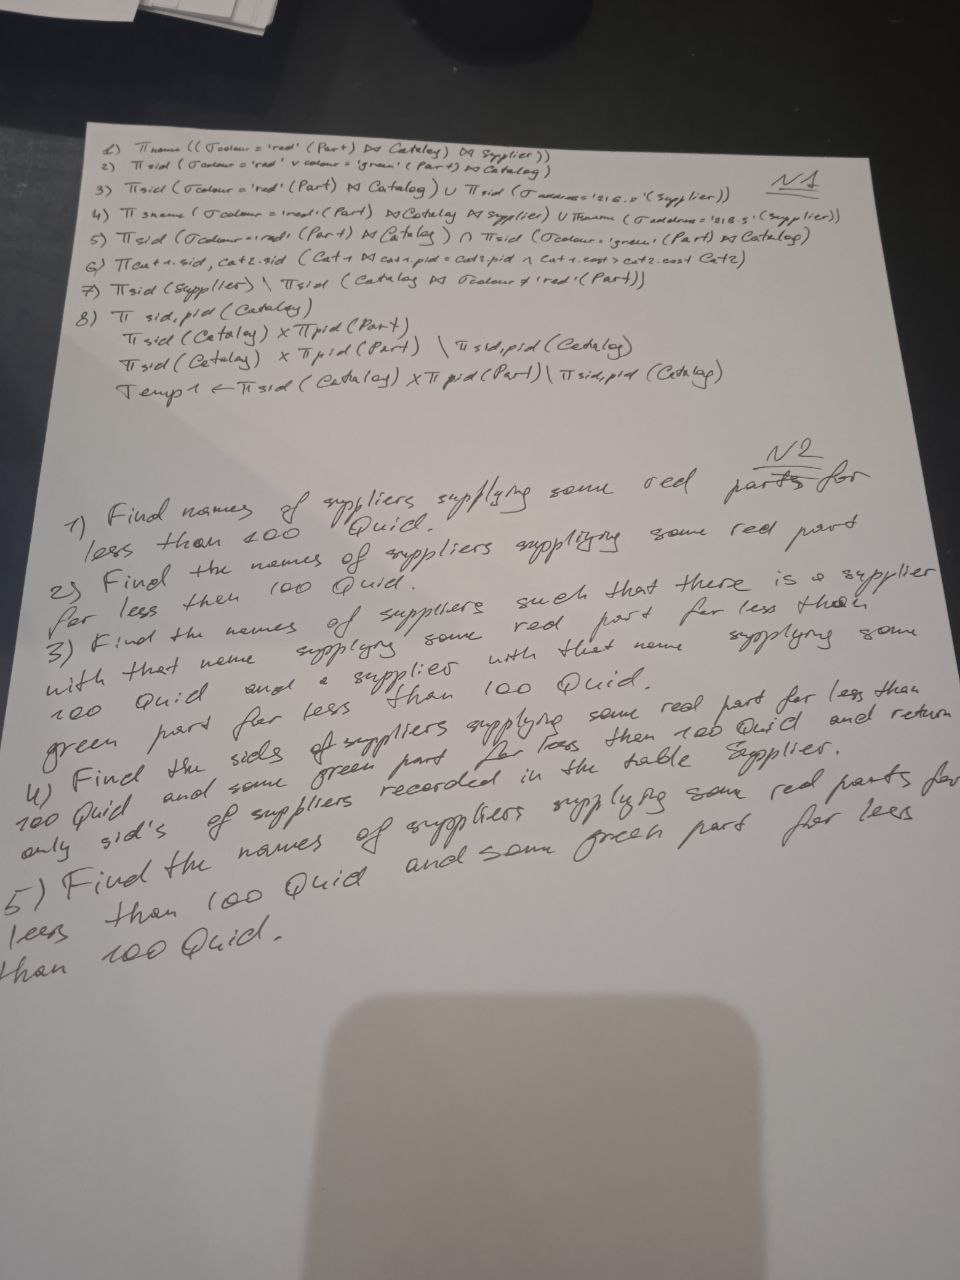 1) πname ((σcolour = 'red' (Part) ⋈ Catalog) ⋈ Supplier))
2) πsid (σcolour = 'red' ∨ colour = 'green' (Part) ⋈ Catalog)
N1
3) πsid (σcolour = 'red' (Part) ⋈ Catalog) ∪ πsid (σaddress = '21G.S' (Supplier))
4) πsname (σcolour = 'red' (Part) ⋈ Catalog ⋈ Supplier) ∪ πsname (σaddress = '21G.S' (Supplier))
5) πsid (σcolour = 'red' (Part) ⋈ Catalog) ∩ πsid (σcolour = 'green' (Part) ⋈ Catalog)
6) πcat1.sid, cat2.sid (Cat1 ⋈ cat1.pid = cat2.pid ∧ cat1.cost > cat2.cost Cat2)
7) πsid (Supplier) \ πsid (Catalog ⋈ σcolour ≠ 'red' (Part))
8) π sid, pid (Catalog)
πsid (Catalog) × πpid (Part)
πsid (Catalog) × πpid (Part) \ πsid, pid (Catalog)
Temp1 ← πsid (Catalog) × πpid (Part) \ πsid, pid (Catalog)
N2
1) Find names of suppliers supplying some red parts for
less than 100 Quid.
2) Find the names of suppliers suppliying some red part
for less then 100 Quid.
3) Find the names of suppliers such that there is a supplier
with that name supplying some red part for less than
100 Quid and a supplier with that name supplying some
green part for less than 100 Quid.
4) Find the sids of suppliers supplying some red part for less than
100 Quid and some green part for less then 100 Quid and return
only sid's of suppliers recorded in the table Supplier.
5) Find the names of suppliers supplying some red parts for
less than 100 Quid and some green part for less
than 100 Quid.